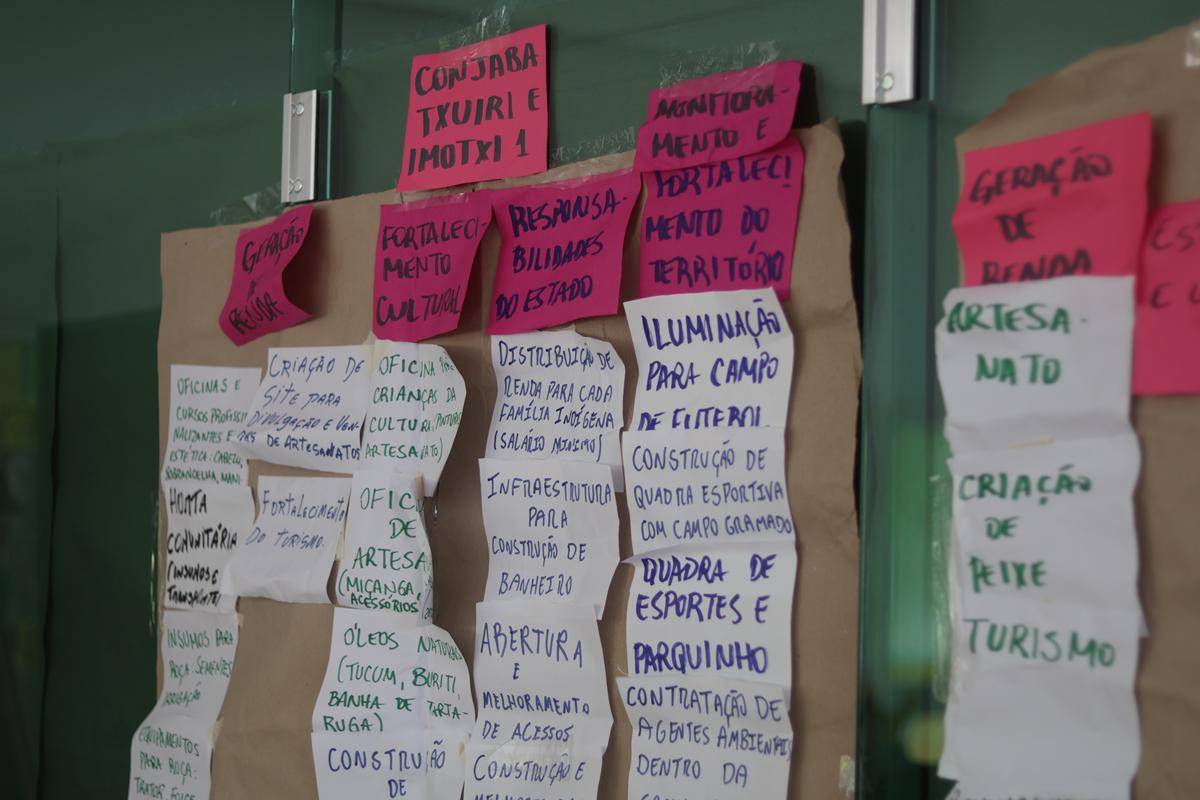 CONJABA
TXUIRI E
IMOTXI 1
GERAÇÃO
DE
RENDA
FORTALECI-
MENTO
CULTURAL
RESPONSA-
BILIDADES
DO ESTADO
MONITORA-
MENTO E
FORTALECI
MENTO DO
TERRITÓRIO
OFICINAS E
CURSOS PROFISSI
NALIZANTES E
ESTÉTICA: CABELO
SOBRANCELHA, MAN
HORTA
COMUNITÁRIA
(INSUMOS E
INSUMOS PARA
ROÇA: SEMENTES
IRRIGAÇÃO
EQUIPAMENTOS
PARA ROÇA:
TRATOR, FOICE
CRIAÇÃO DE
SITE PARA
DIVULGAÇÃO E VEN-
DAS DE ARTESANATOS
FORTALECIMENTO
DO TURISMO.
OFICINA
CRIANÇAS DA
CULTURA (PINTURA
ARTESANATO)
OFIC
DE
ARTESA
(MIÇANGA,
ACESSÓRIOS
ÓLEOS NATURAIS
(TUCUM, BURITI,
BANHA DE TARTA-
RUGA)
CONSTRUÇÃO
DE
DISTRIBUIÇÃO DE
RENDA PARA CADA
FAMÍLIA INDÍGENA
(SALÁRIO MINIMO)
INFRAESTRUTURA
PARA
CONSTRUÇÃO DE
BANHEIRO
ABERTURA
E
MELHORAMENTO
DE ACESSOS
CONSTRUÇÃO E
ILUMINAÇÃO
PARA CAMPO
DE FUTEBOL
CONSTRUÇÃO DE
QUADRA ESPORTIVA
COM CAMPO GRAMADO
QUADRA DE
ESPORTES E
PARQUINHO
CONTRATAÇÃO DE
AGENTES AMBIENTAIS
DENTRO DA
GERAÇÃO
DE
RENDA
ARTESA-
NATO
CRIAÇÃO
DE
PEIXE
TURISMO
ES
E